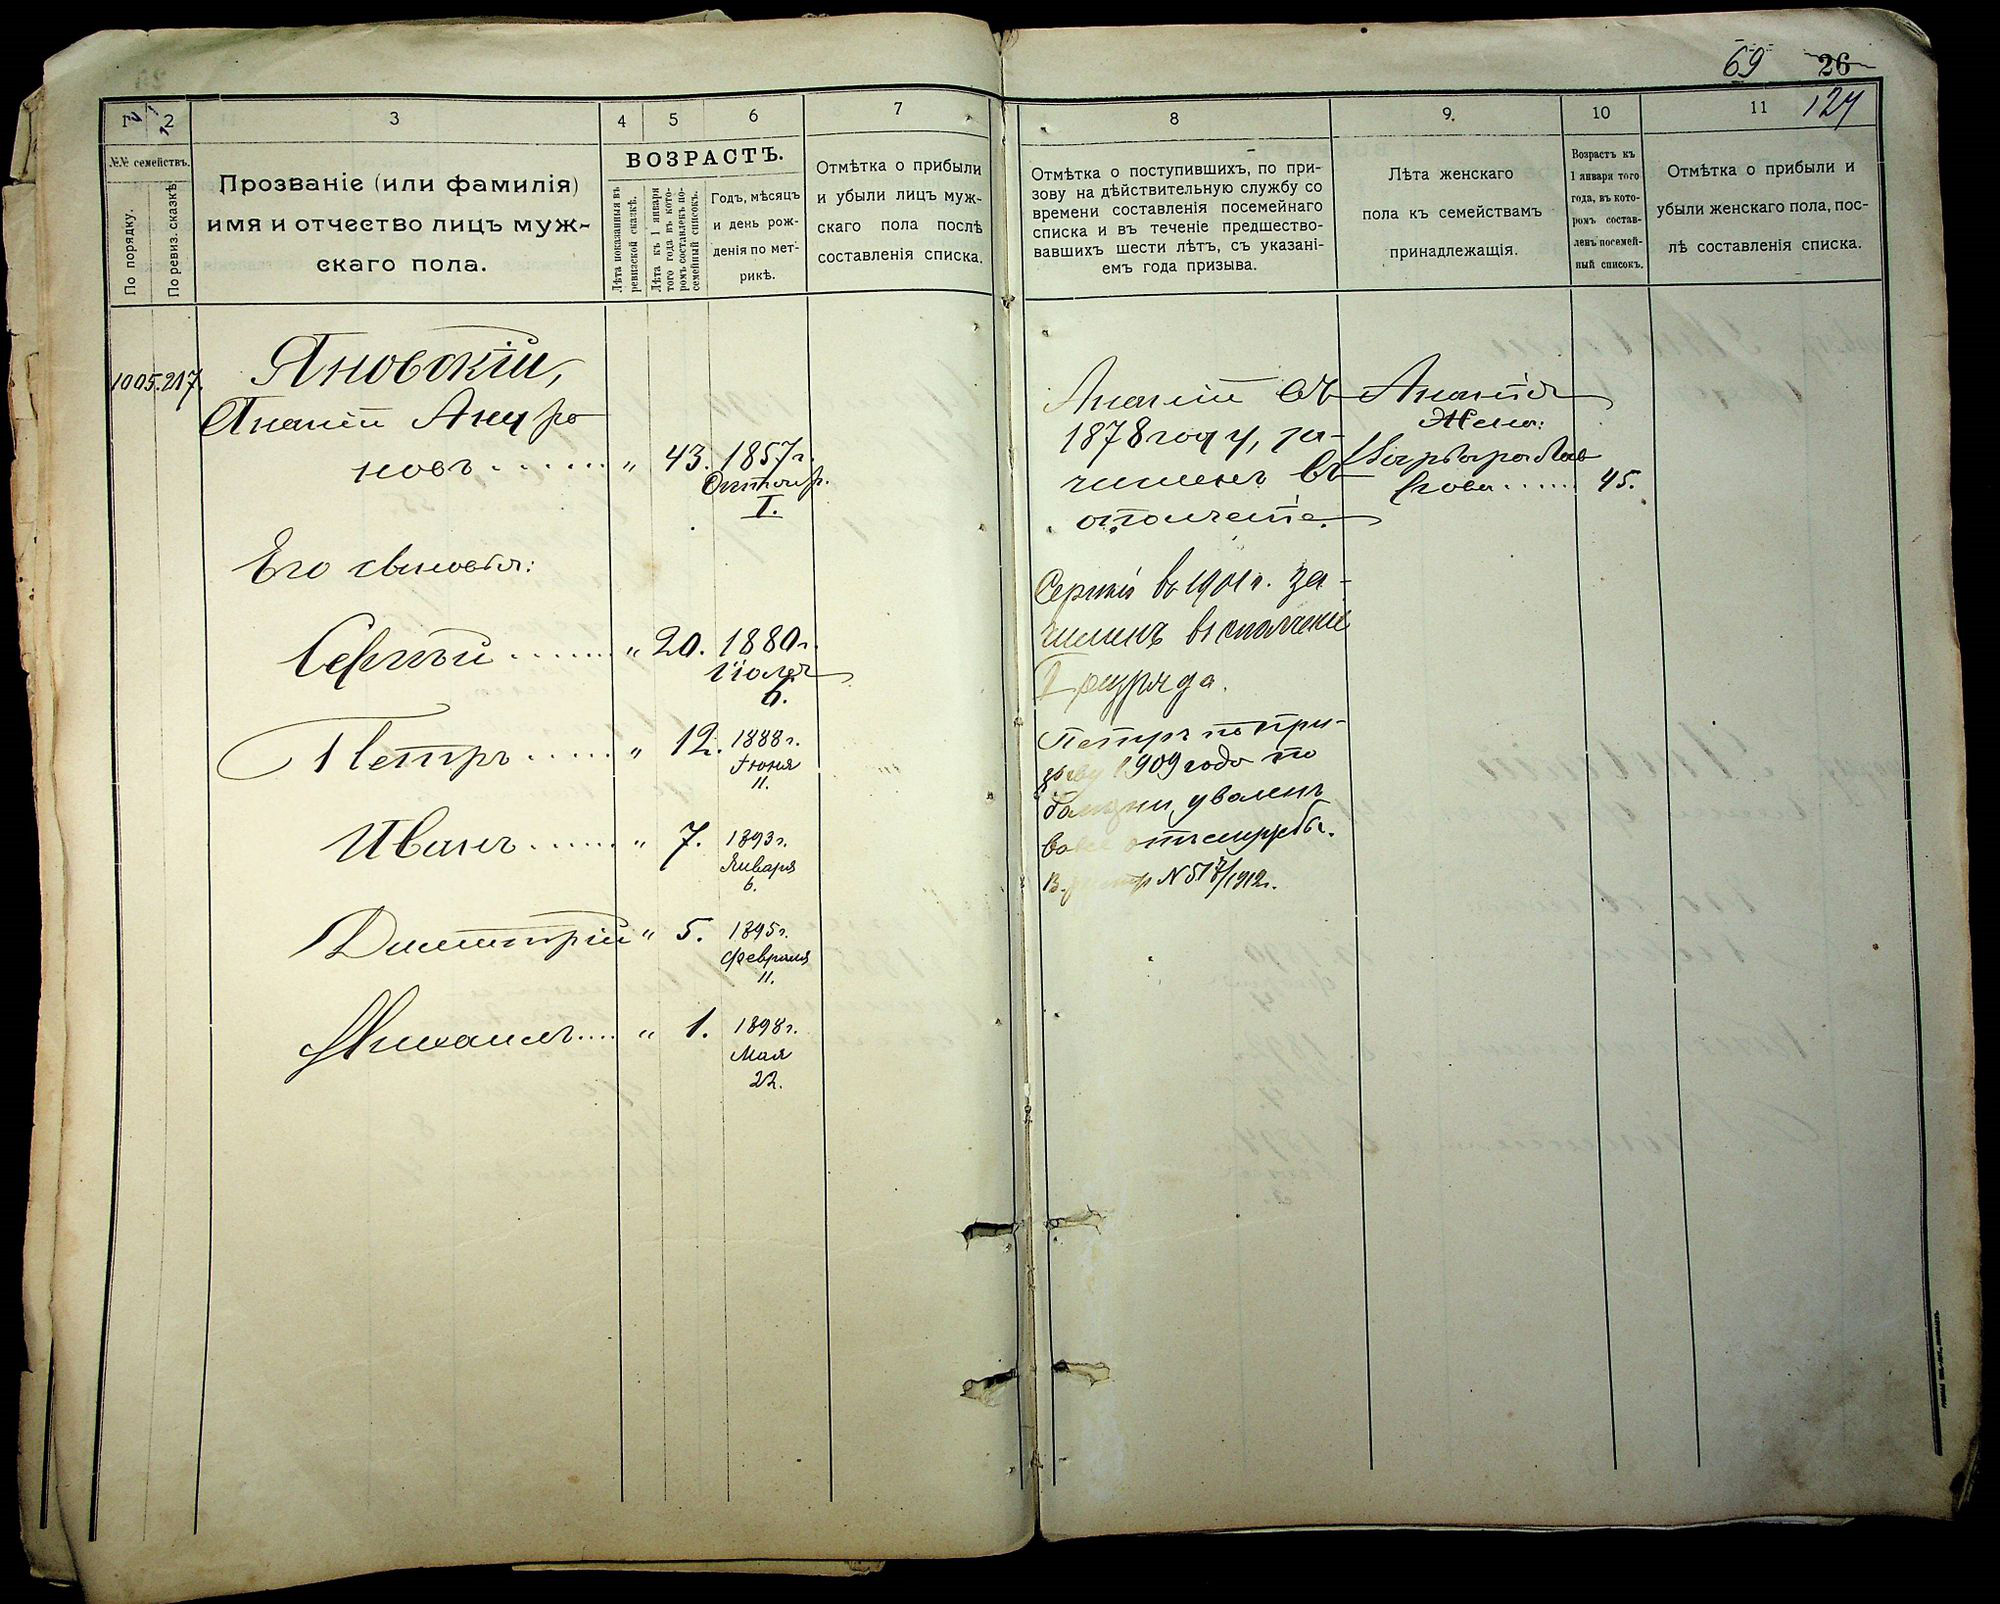 69 26
127
1 2 3 4 5 6 7
№№ семействъ.
По порядку.
По ревиз. сказкѣ.
Прозваніе (или фамилія)
имя и отчество лицъ муж-
скаго пола.
ВОЗРАСТЪ.
Лѣта показанныя въ
ревизской сказкѣ.
Лѣта къ 1 января
того года въ кото-
ромъ составленъ по-
семейный списокъ.
Годъ, мѣсяцъ
и день рож-
денія по мет-
рикѣ.
Отмѣтка о прибыли
и убыли лицъ муж-
скаго пола послѣ
составленія списка.
1005. 217.
Яновскій,
Ананій Андро
новъ . . . . . . „ 43. 1857 г.
Октябр.
1.
Его сыновья:
Сергѣй . . . . . . „ 20. 1880 г.
Іюля
6.
Петръ . . . . . „ 12. 1888 г.
Іюня
11.
Иванъ . . . . . . „ 7. 1893 г.
Января
6.
Димитрій „ 5. 1895 г.
Февраля
11.
Михаилъ.... „ 1. 1898 г.
Мая
22.
8 9. 10 11
Отмѣтка о поступившихъ, по при-
зову на дѣйствительную службу со
времени составленія посемейнаго
списка и въ теченіе предшество-
вавшихъ шести лѣтъ, съ указані-
емъ года призыва.
Лѣта женскаго
пола къ семействамъ
принадлежащія.
Возрастъ къ
1 января того
года, въ кото-
ромъ состав-
ленъ посемей-
ный списокъ.
Отмѣтка о прибыли и
убыли женскаго пола, пос-
лѣ составленія списка.
Ананій въ
1878 году, за-
численъ въ
ополченіе.
Сергѣй въ 1901 г. за-
численъ въ ополченіе
I разряда.
Петръ по при-
зыву 1909 года по
болѣзни уволенъ
вовсе отъ службы.
1912 г.
Ананія
Жена:
Варвара
45.